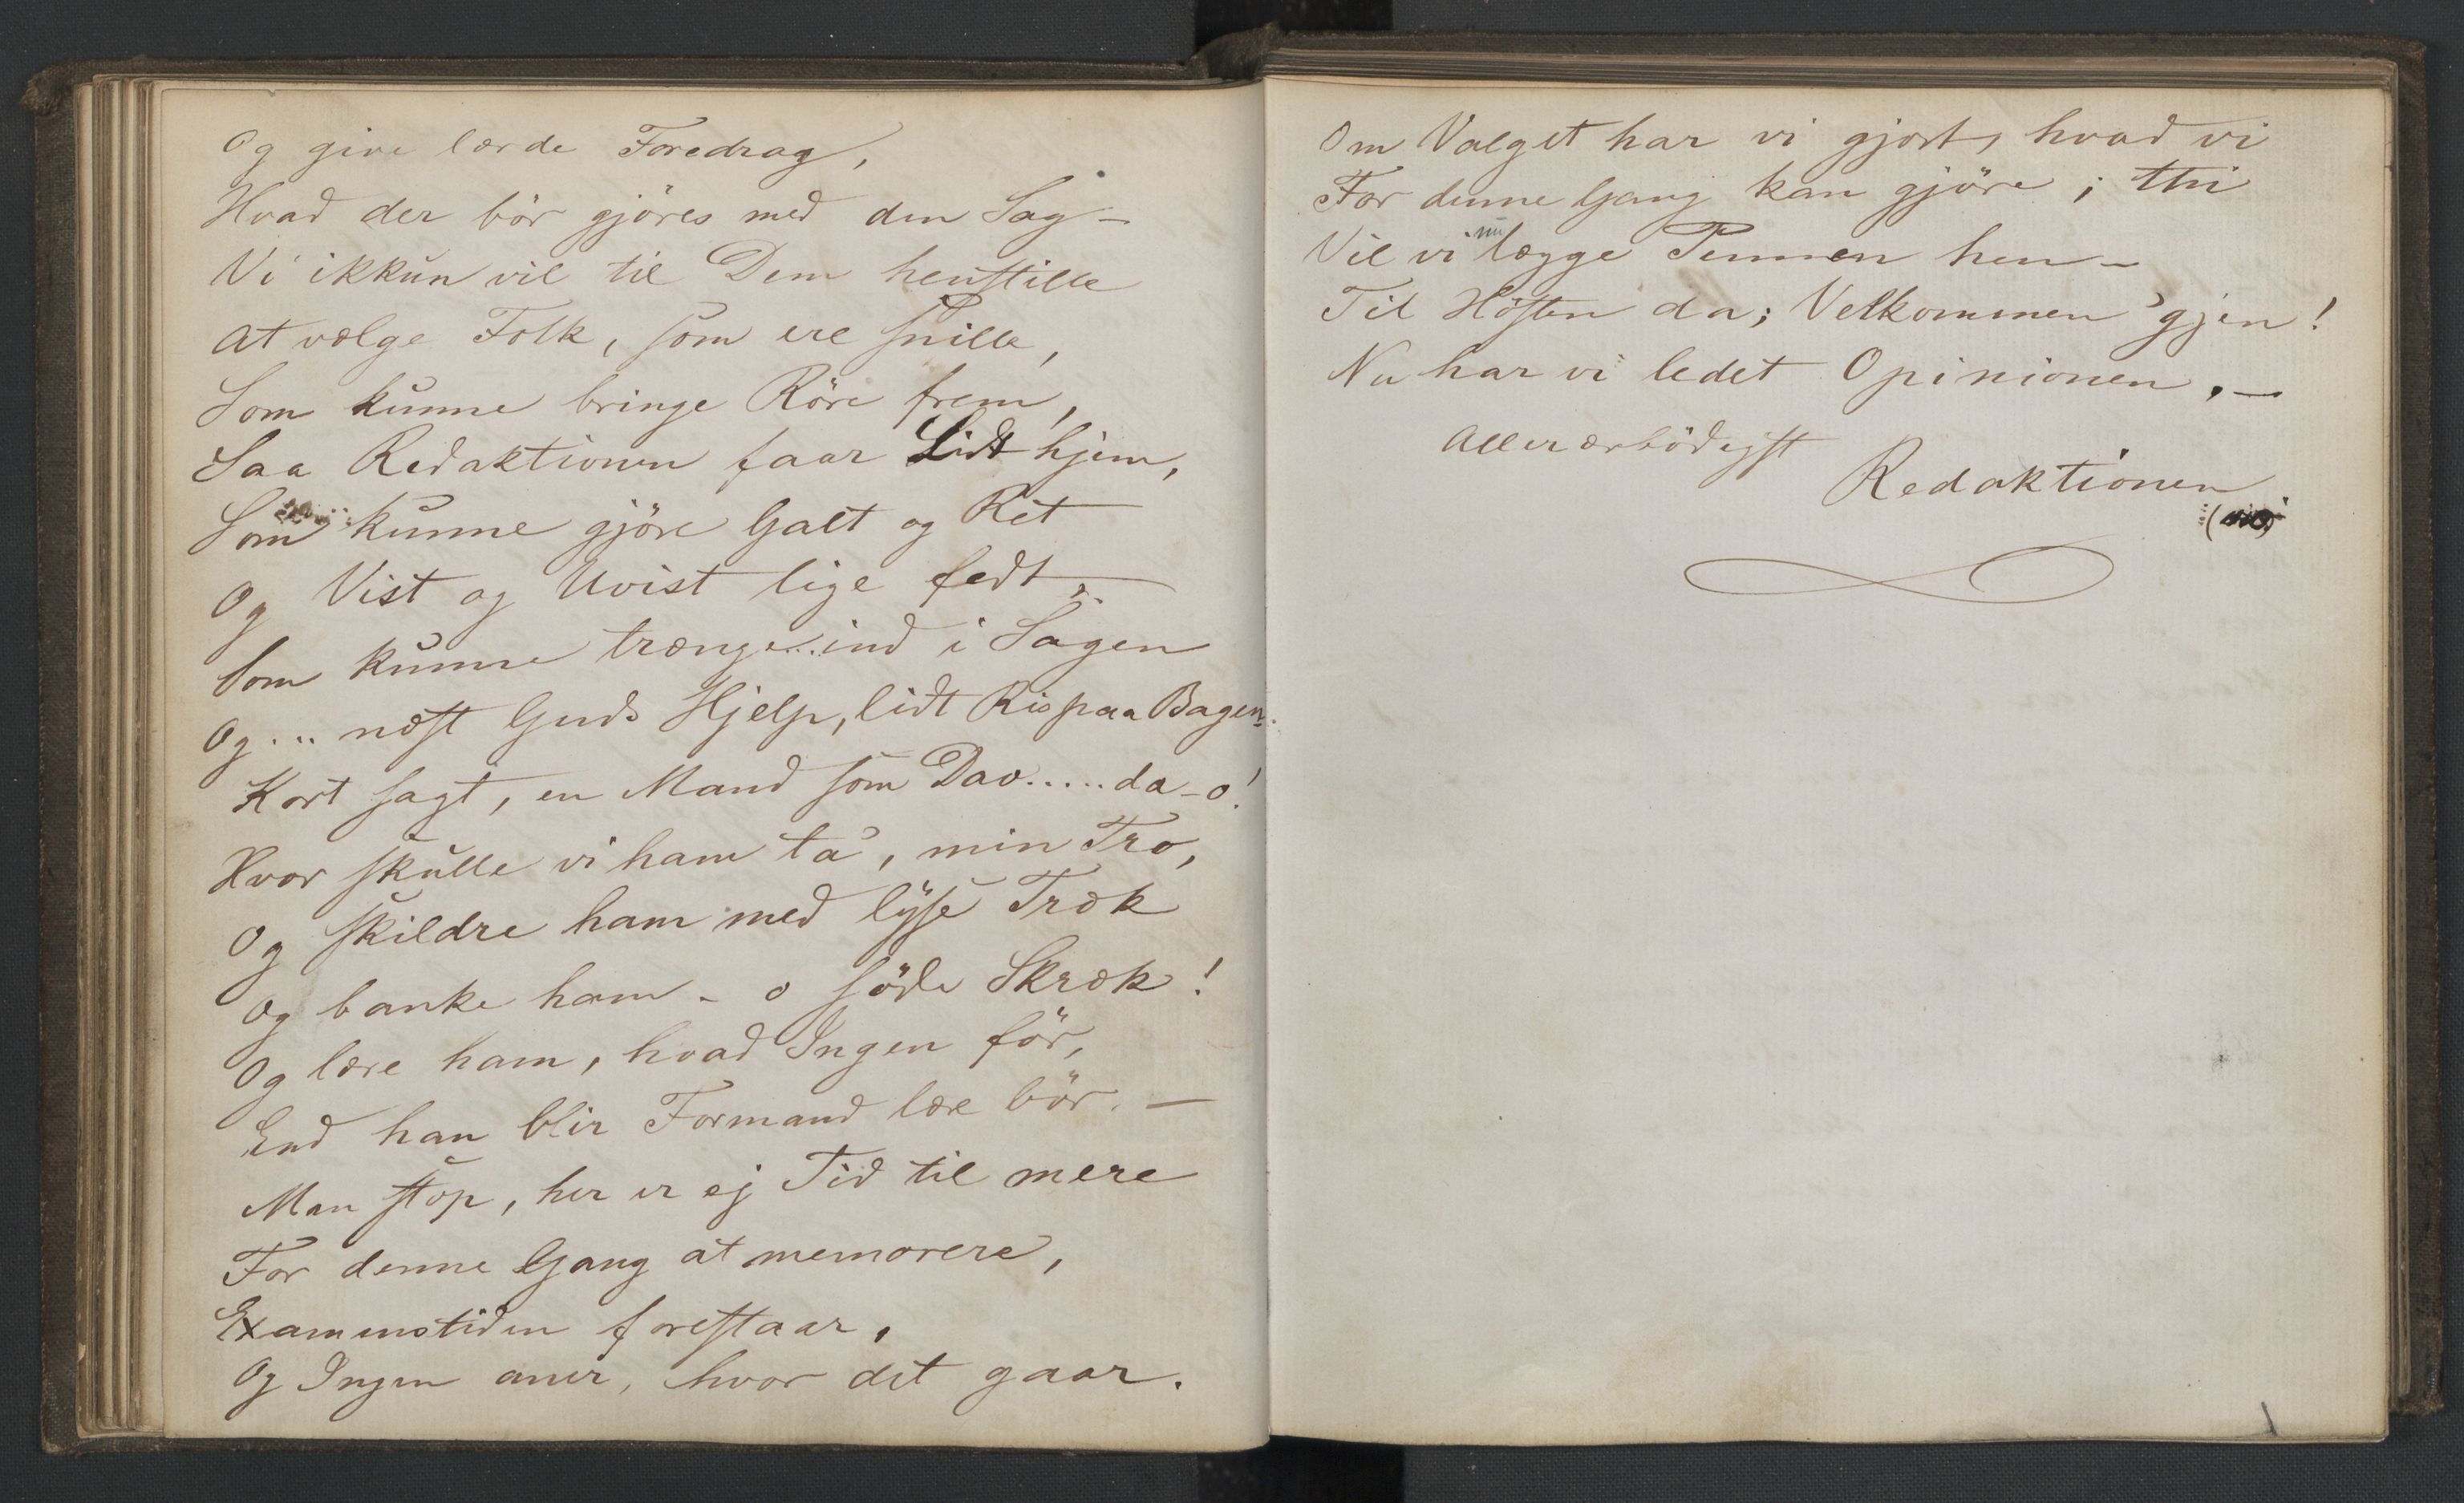 Og give lærde Foredrag,
Hvad der bör gjöres med den Sag –
Vi ikkun vil til Dem henstille
At vælge Folk, som ere snille,
Som kunne bringe Röre frem,
Saa Redaktionen faar Lidt hjem,
Som kunne gjöre Galt og Ret
Og Vist og Uvist lige fedt,
Som kunne trænge ind i Sagen
Og... næst Guds Hjelp, lidt Ris paa Bagen.
Kort sagt, en Mand som Dav.....da – o!
Hvor skulle vi ham ta', min Tro,
Og skildre ham med lyse Træk
Og banke ham – o söde Skræk!
Og lære ham, hvad Ingen för,
End han blir Formand lære bör. –
Men stop, her er ej Tid til mere
For denne Gang at memorere,
Examenstiden forestaar,
Og Ingen aner, hvor det gaar.
Om Valget har vi gjort, hvad vi
For denne Gang kan gjöre; thi
Vil vi nu lægge Pennen hen –
Til Hösten da; Velkommen 'gjen!
Nu har vi ledet Opinionen. –
Allerærbödigst
Redaktionen